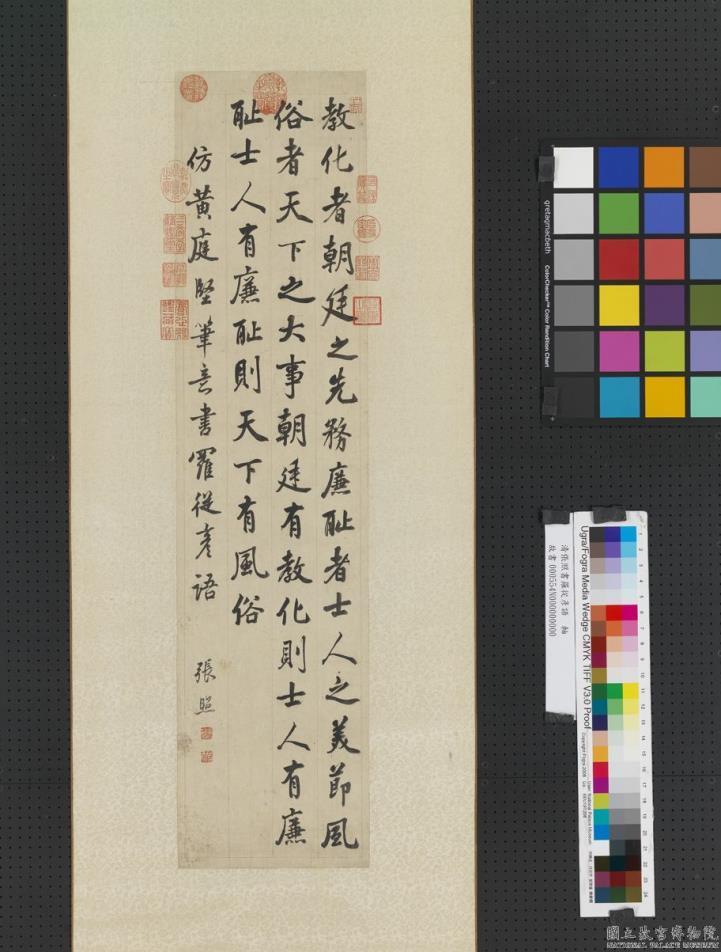 教化者朝廷之先務廉耻者士人之美節風
俗者天下之大事朝廷有教化則士人有廉
耻士人有廉耻則天下有風俗
仿黄庭堅筆意書羅從彥語
張照
gretagmacbeth
ColorChecker™ Color Rendition Chart
清張照書羅從彥語 軸
故書 000554N000000000
Ugra/Fogra Media Wedge CMYK TIFF V3.0 Proof
國立故宮博物院
NATIONAL PALACE MUSEUM